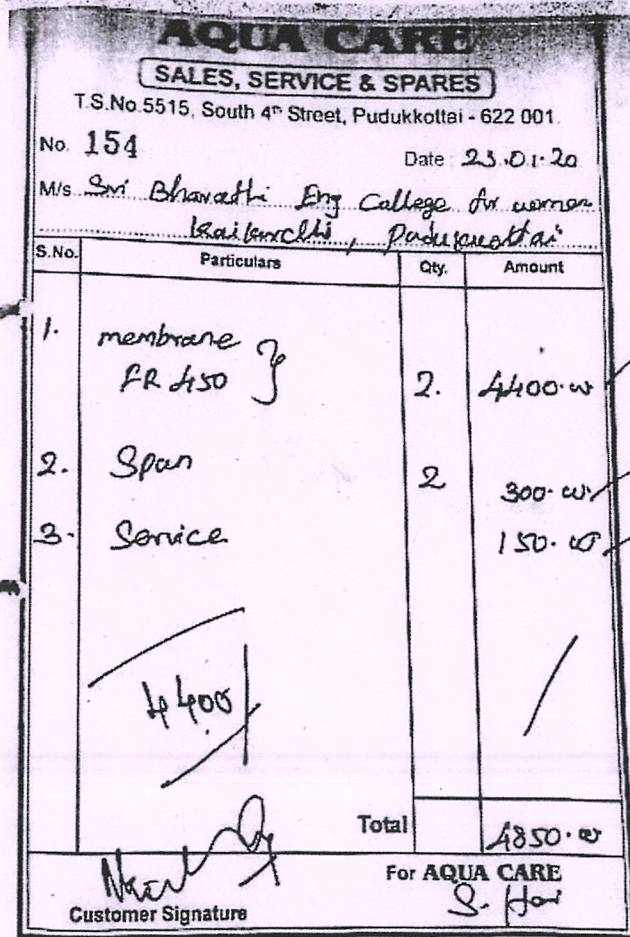 AQUA CARE
SALES, SERVICE & SPARES
T.S.No.5515, South 4th Street, Pudukkottai - 622 001.
No. 154 Date : 23.01.20
M/s Sri Bharathi Eng College for women
Kaikurchi, Pudukkottai
S.No. Particulars Qty. Amount
1. membrane
FR 450 } 2. 4400.00
2. Span 2 300.00
3. Service 150.00
4400
Total 4850.00
For AQUA CARE
S.
Customer Signature